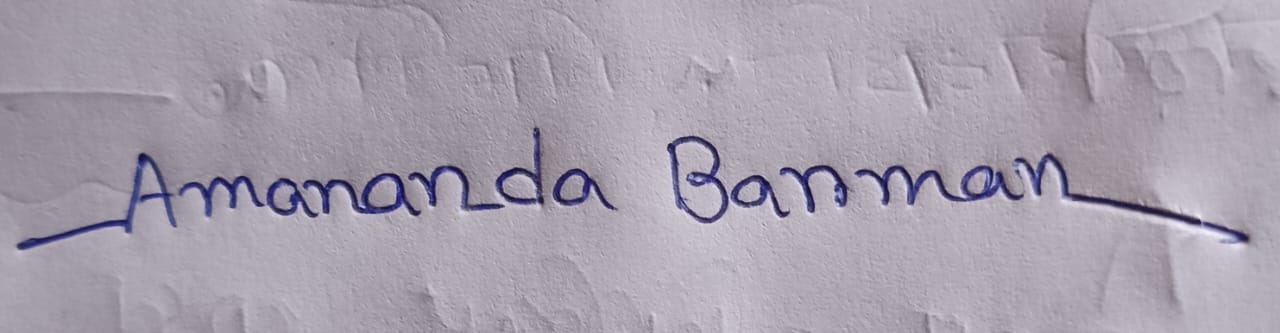 Amananda Barman